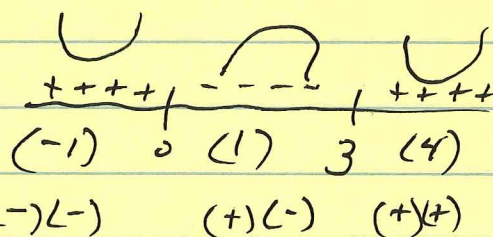 ++++ ---- ++++
(-1) 0 (1) 3 (4)
-)(-) (+)(-) (+)(+)